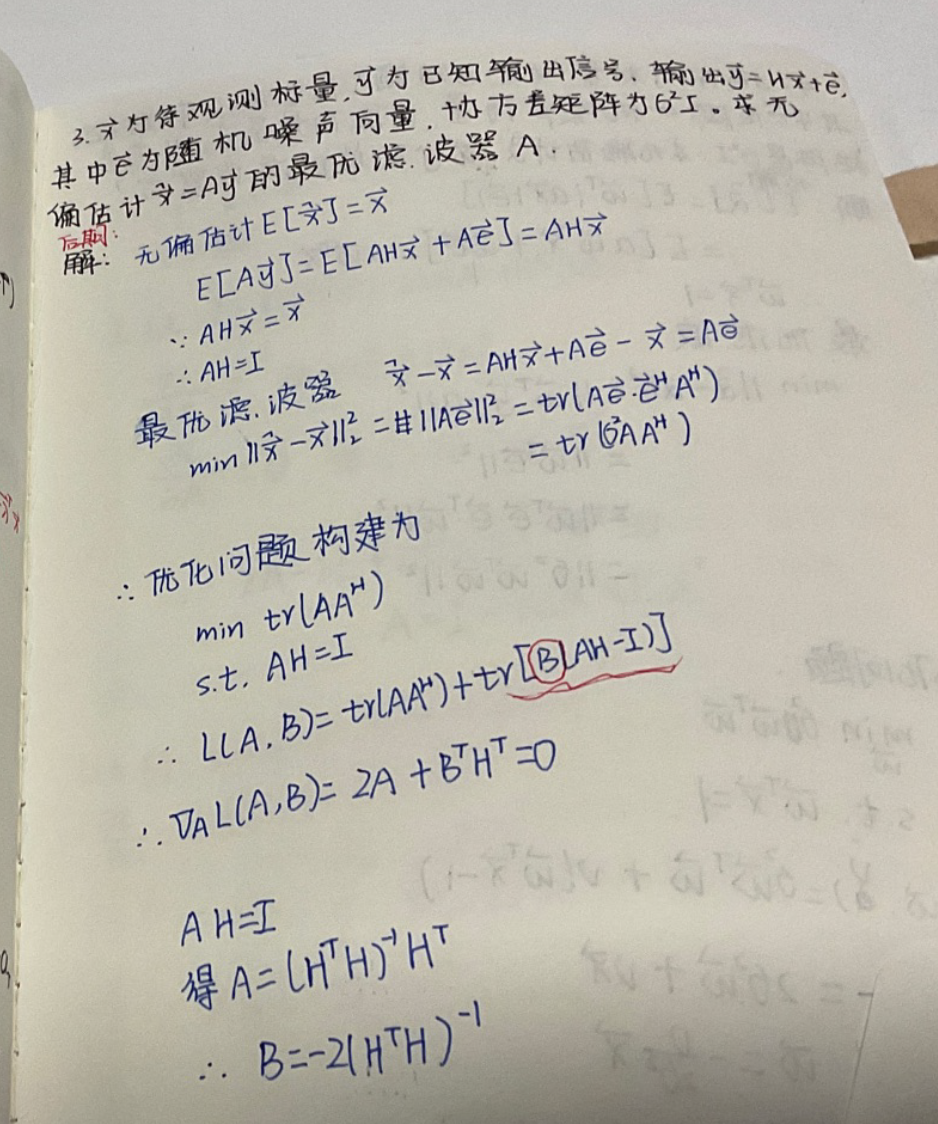 3. x⃗为待观测标量, y⃗为已知输出信号. 输出y⃗=Hx⃗+e⃗,
其中e⃗为随机噪声向量, 协方差矩阵为σ²I。求无
偏估计x̂⃗=Ay⃗的最优滤波器A.
后期:
解: 无偏估计E[x̂⃗]=x⃗
E[Ay⃗]=E[AHx⃗+Ae⃗]=AHx⃗
∵ AHx⃗=x⃗
∴ AH=I
最优滤波器 x̂⃗-x⃗=AHx⃗+Ae⃗-x⃗=Ae⃗
min‖x̂⃗-x⃗‖₂²=‖Ae⃗‖₂²=tr(Ae⃗·e⃗ᴴAᴴ)
=tr(σ²AAᴴ)
∴ 优化问题构建为
min tr(AAᴴ)
s.t. AH=I
∴ L(A,B)=tr(AAᴴ)+tr[B(AH-I)]
∴ ∇ᴀL(A,B)=2A+BᵀHᵀ=0
AH=I
得A=(HᵀH)⁻¹Hᵀ
∴ B=-2(HᵀH)⁻¹